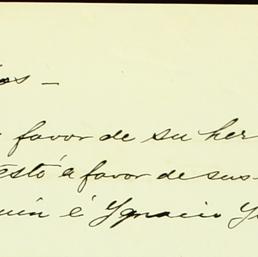 favor de su her
testó á favor de sus
uin é Ygnacio Y